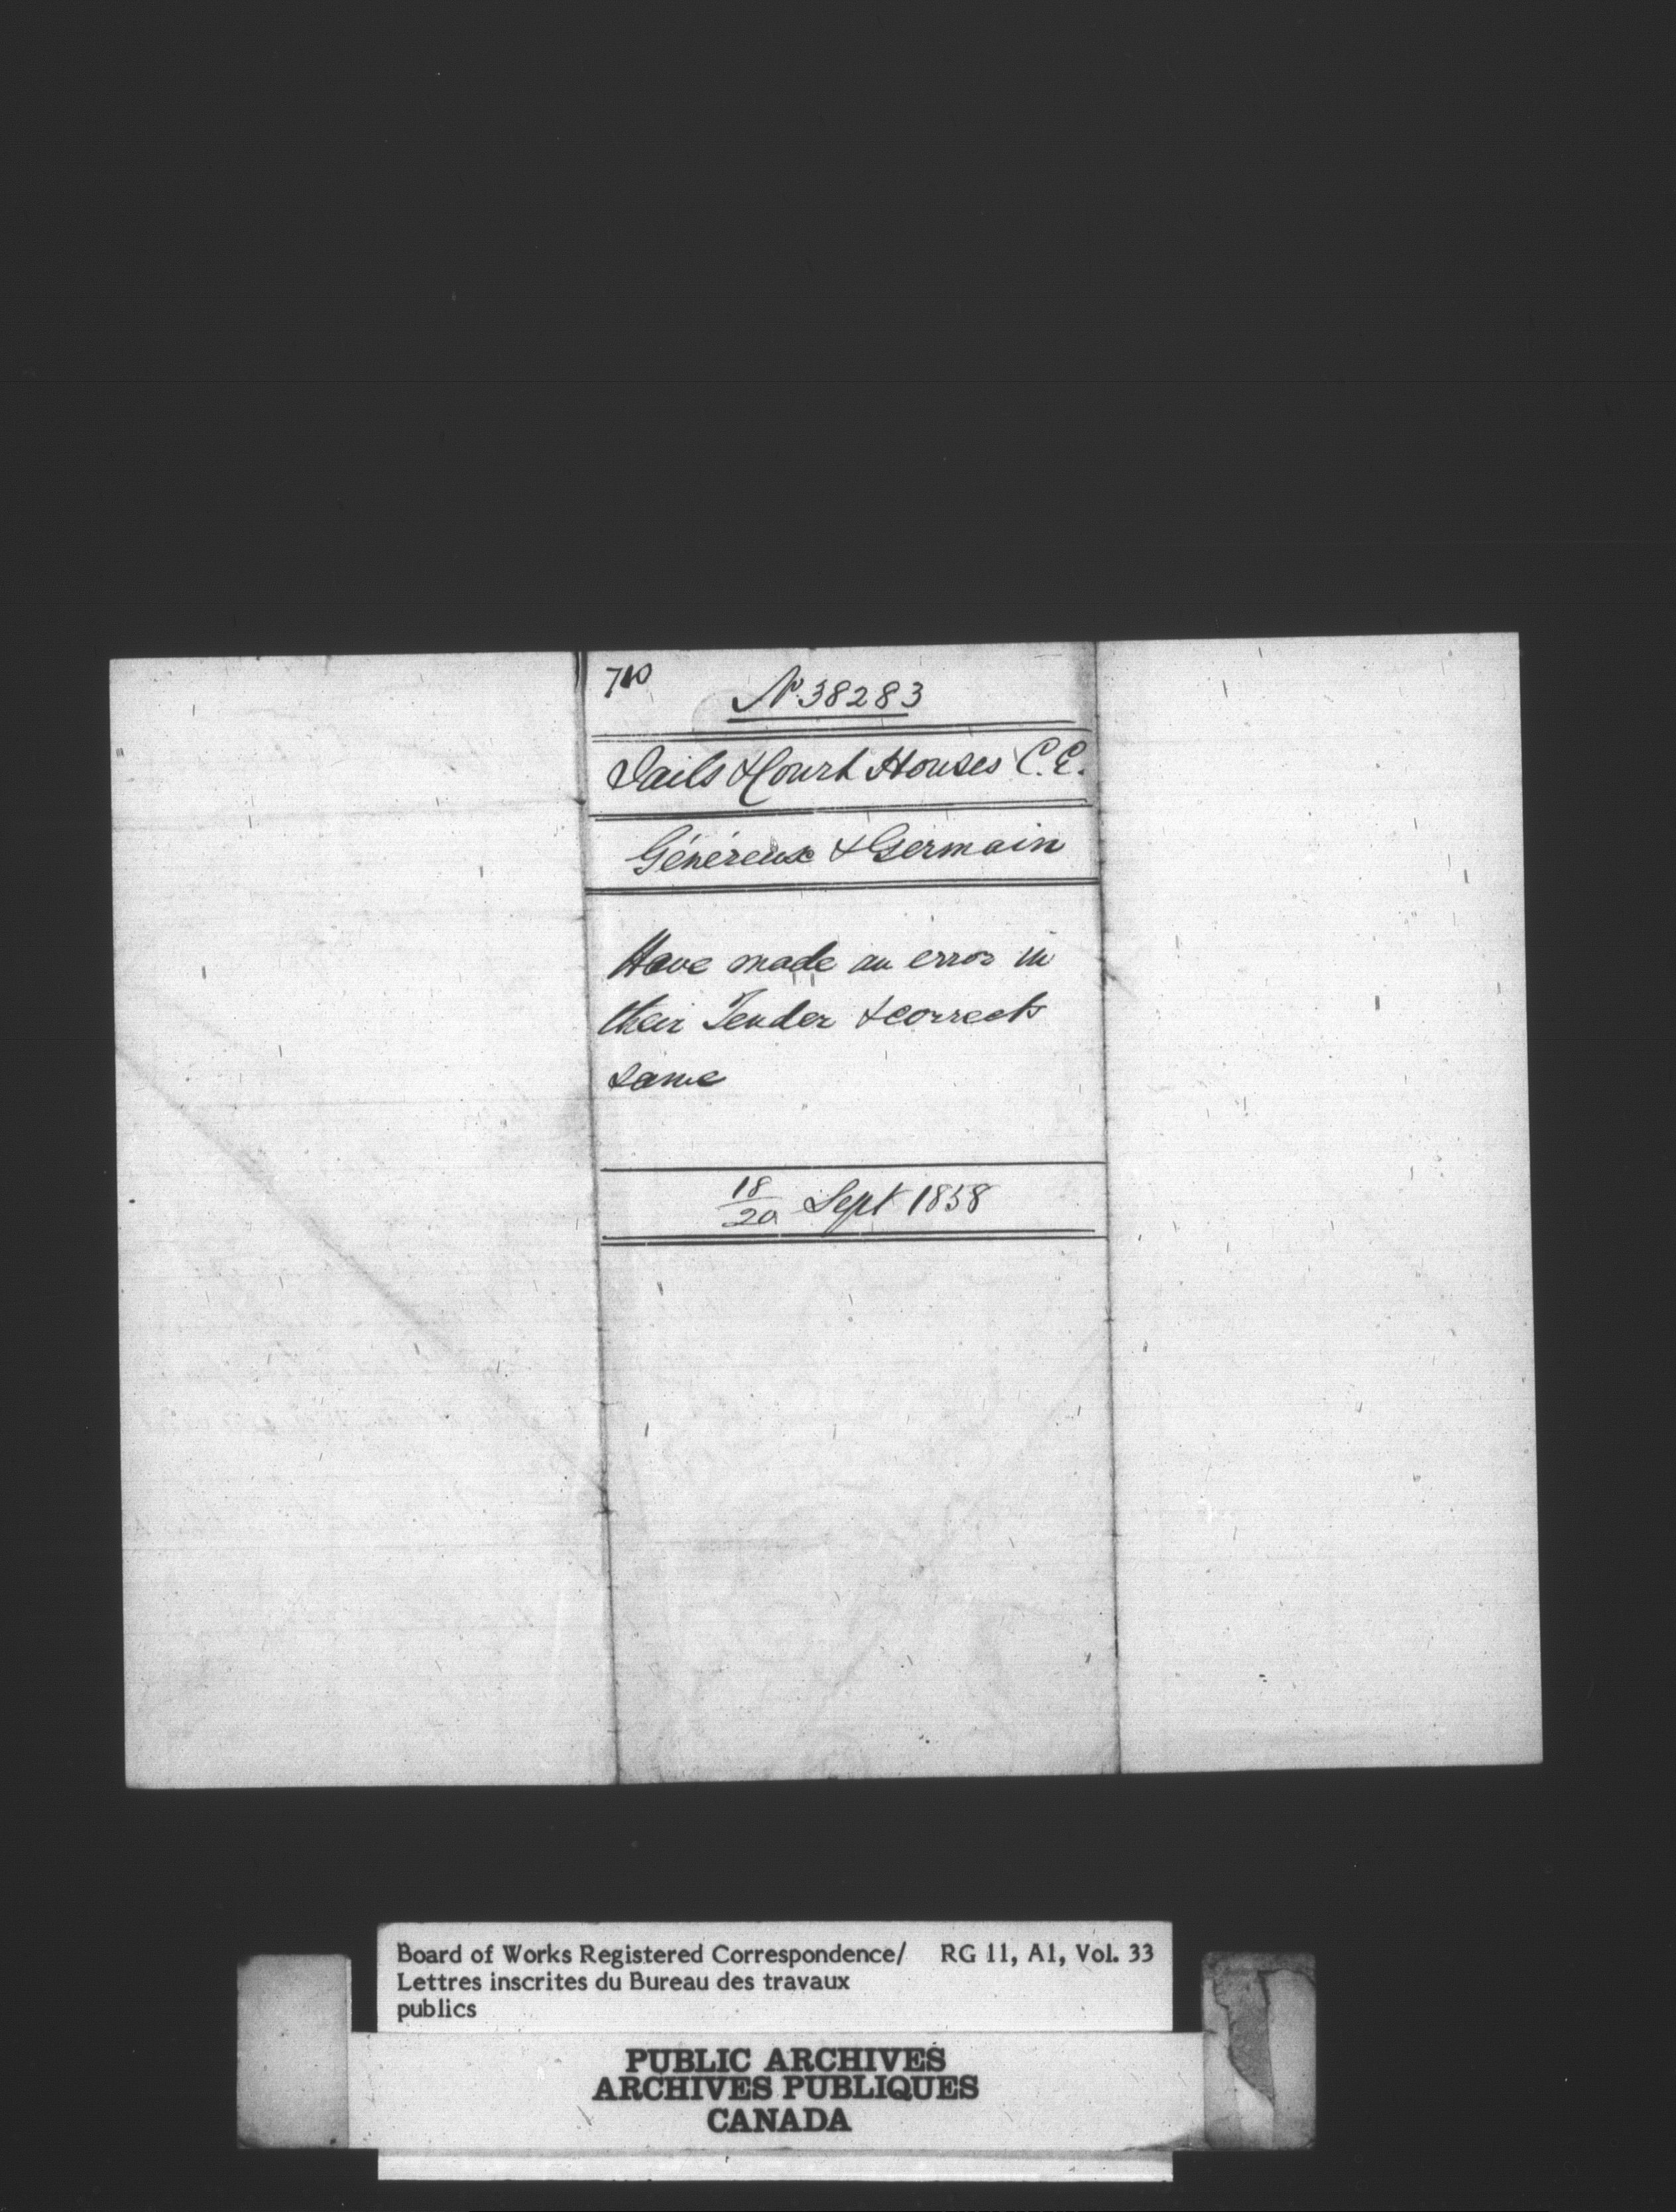 710
No. 38283
Jails & Court Houses C.E.
Généreux & Germain
Have made an error in
their Tender & corrects
same
18/20 Sept 1858
Board of Works Registered Correspondence/ RG 11, A1, Vol. 33
Lettres inscrites du Bureau des travaux
publics
PUBLIC ARCHIVES
ARCHIVES PUBLIQUES
CANADA